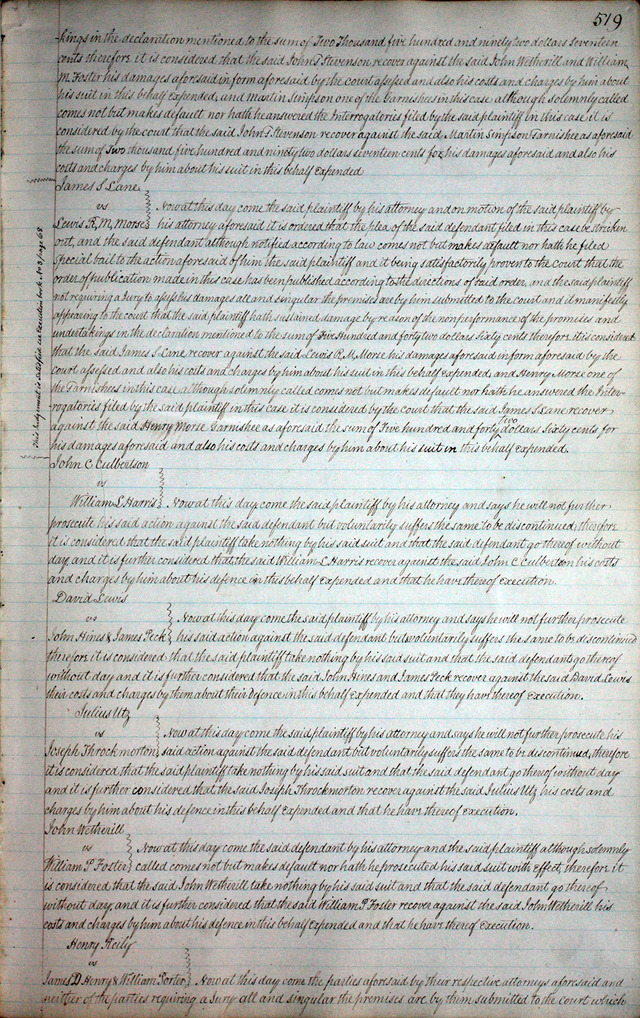 519
kings in the declaration mentioned to the sum of Two Thousand five hundred and ninety two dollars seventeen
cents therefore it is considered that the said John T Stevenson recover against the said John Wetherill and William
M Foster his damages aforesaid in form aforesaid by the court assessed and also his costs and charges by him about
his suit in this behalf expended, and Martin Simpson one of the Garnishees in this case although solemnly called
comes not but makes default nor hath he answered the Interrogatories filed by the said plaintiff in this case it is
considered by the court that the said John T Stevenson recover against the said Martin Simpson Garnishee as aforesaid
the sum of Two thousand five hundred and ninety two dollars seventeen cents for his damages aforesaid and also his
costs and charges by him about his suit in this behalf expended
James S Lane
vs Now at this day come the said plaintiff by his attorney and on motion of the said plaintiff by
Lewis R, M, Morse his attorney aforesaid it is ordered that the plea of the said defendant filed in this case be stricken
out, and the said defendant although notified according to law comes not but makes default nor hath he filed
special bail to the action aforesaid of him the said plaintiff and it being satisfactorily proven to the court that the
order of publication made in this case has been published according to the directions of said order, and the said plaintiff
not requiring a Jury to assess his damages all and singular the premises are by him submitted to the court and it manifestly
appearing to the court that the said plaintiff hath sustained damage by reason of the nonperformance of the promises and
undertakings in the declaration mentioned to the sum of Five Hundred and forty two dollars Sixty cents therefore it is considered
that the said James S Lane recover against the said Lewis R. M. Morse his damages aforesaid in form aforesaid by the
court assessed and also his costs and charges by him about his suit in this behalf expended, and Henry Morse one of
the Garnishees in this case although solemnly called comes not but makes default nor hath he answered the Inter-
rogatories filed by the said plaintiff in this case it is considered by the court that the said James S Lane recover
against the said Henry Morse Garnishee as aforesaid the sum of Five hundred and forty two dollars Sixty cents for
his damages aforesaid and also his costs and charges by him about his suit in this behalf expended.
This Judgment is satisfied see Execution book No 3 page 68
John C Culbertson
vs
William S Harris Now at this day come the said plaintiff by his attorney and says he will not further
prosecute his said action against the said defendant but voluntarily suffers the same to be discontinued, therefore
it is considered that the said plaintiff take nothing by his said suit and that the said defendant go thereof without
day and it is further considered that the said William S Harris recover against the said John C Culbertson his costs
and charges by him about his defence in this behalf expended and that he have thereof execution.
David Lewis
vs Now at this day come the said plaintiff by his attorney and says he will not further prosecute
John Hines & James Peck his said action against the said defendant but voluntarily suffers the same to be discontinued
therefore it is considered that the said plaintiff take nothing by his said suit and that the said defendants go thereof
without day and it is further considered that the said John Hines and James Peck recover against the said David Lewis
their costs and charges by them about their Defence in this behalf expended and that they have thereof Execution.
Julius Utz
vs Now at this day come the said plaintiff by his attorney and says he will not further prosecute his
Joseph Throckmorton said action against the said defendant but voluntarily suffers the same to be discontinued, therefore
it is considered that the said plaintiff take nothing by his said suit and that the said defendant go thereof without day
and it is further considered that the said Joseph Throckmorton recover against the said Julius Utz his costs and
charges by him about his defence in this behalf expended and that he have thereof execution.
John Wetherill
vs Now at this day come the said defendant by his attorney and the said plaintiff although solemnly
William P Foster called comes not but makes default nor hath he prosecuted his said suit with effect, therefore it
is considered that the said John Wetherill take nothing by his said suit and that the said defendant go thereof
without day, and it is further considered that the said William P Foster recover against the said John Wetherill his
costs and charges by him about his defence in this behalf expended and that he have thereof Execution.
Henry Reily
vs
James D Henry & William Porter Now at this day come the parties aforesaid by their respective attorneys aforesaid and
neither of the parties requiring a Jury all and singular the premises are by them submitted to the court which